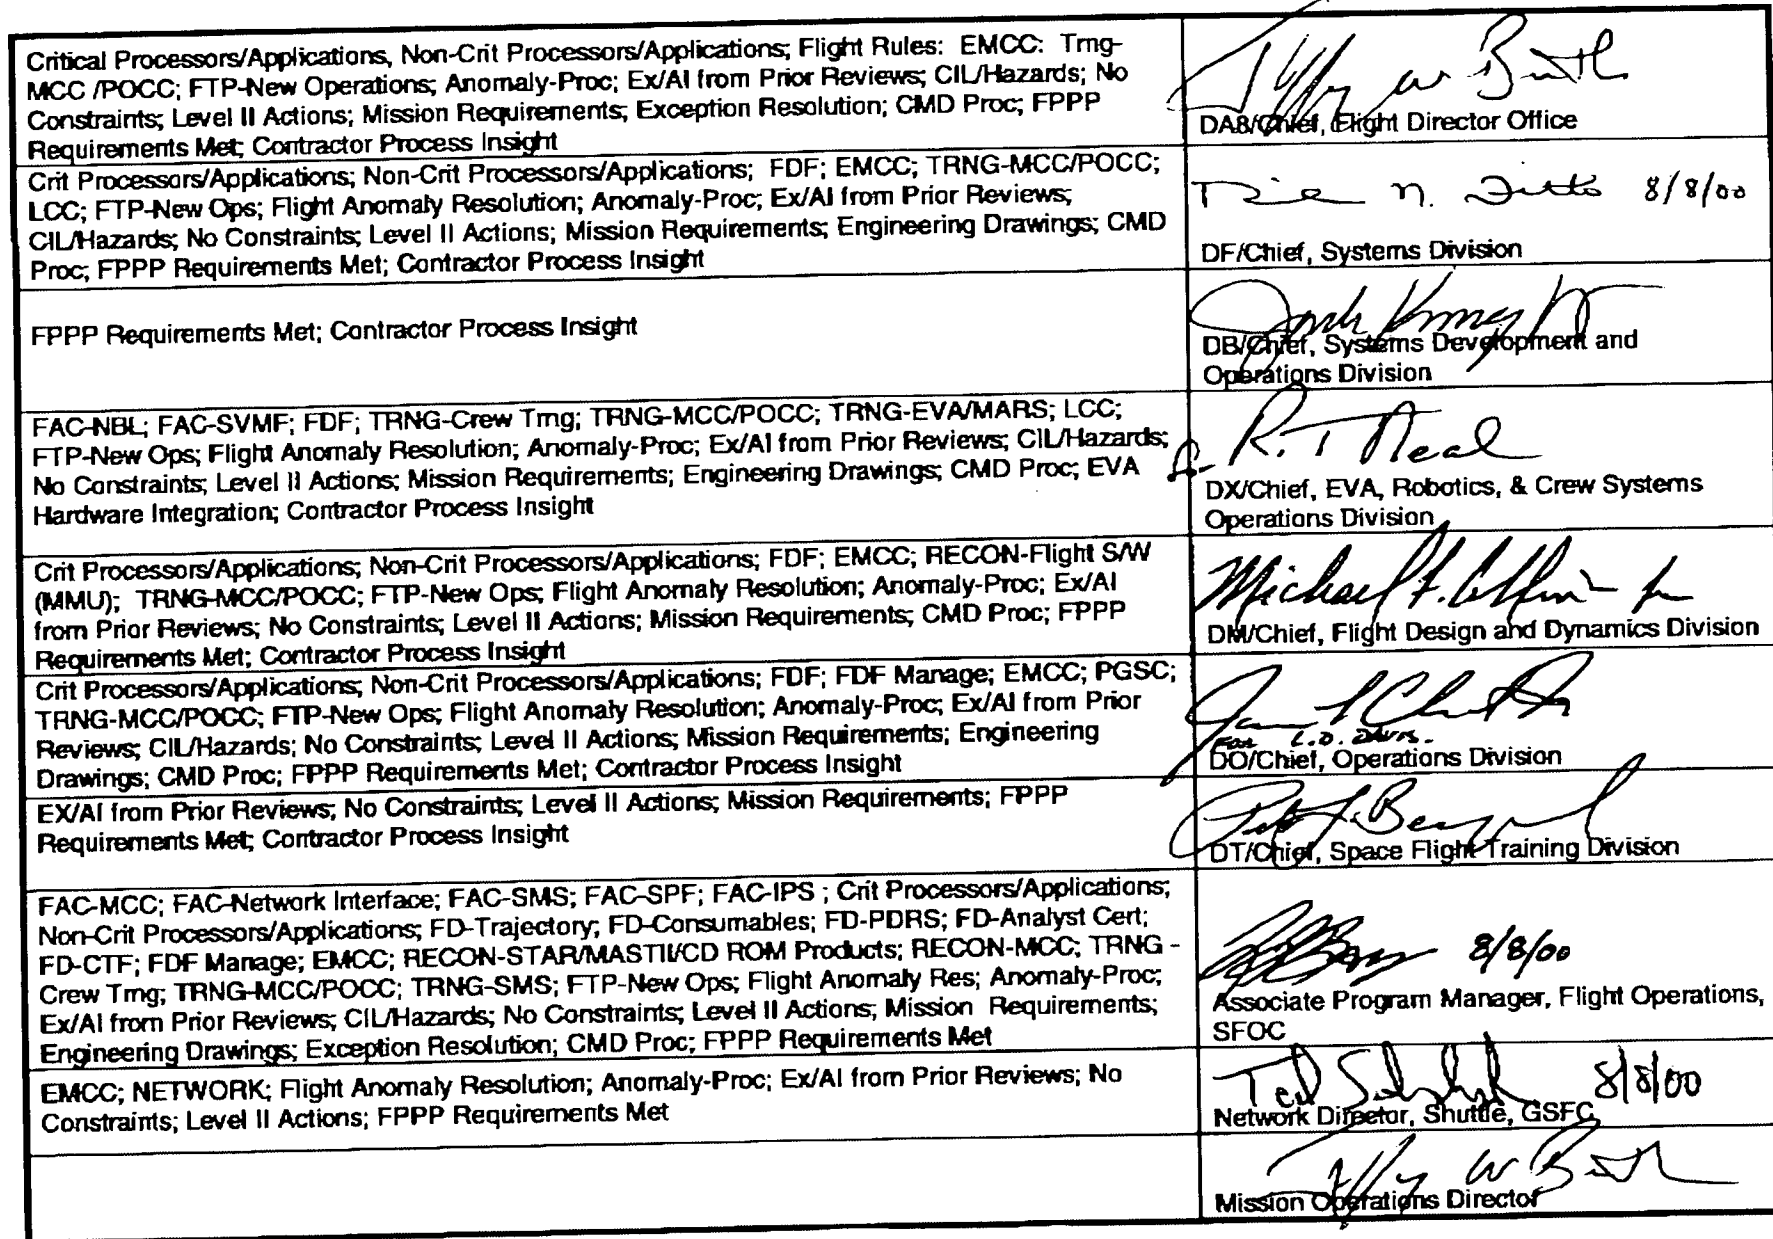 Critical Processors/Applications, Non-Crit Processors/Applications; Flight Rules: EMCC: Trng-
MCC /POCC; FTP-New Operations; Anomaly-Proc; Ex/AI from Prior Reviews; CIL/Hazards; No
Constraints; Level II Actions; Mission Requirements; Exception Resolution; CMD Proc; FPPP
Requirements Met; Contractor Process Insight
DA8/Chief, Flight Director Office
Crit Processors/Applications; Non-Crit Processors/Applications; FDF; EMCC; TRNG-MCC/POCC;
LCC; FTP-New Ops; Flight Anomaly Resolution; Anomaly-Proc; Ex/AI from Prior Reviews;
CIL/Hazards; No Constraints; Level II Actions; Mission Requirements; Engineering Drawings; CMD
Proc; FPPP Requirements Met; Contractor Process Insight
8/8/00
DF/Chief, Systems Division
FPPP Requirements Met; Contractor Process Insight
DB/Chief, Systems Development and
Operations Division
FAC-NBL; FAC-SVMF; FDF; TRNG-Crew Trng; TRNG-MCC/POCC; TRNG-EVA/MARS; LCC;
FTP-New Ops; Flight Anomaly Resolution; Anomaly-Proc; Ex/AI from Prior Reviews; CIL/Hazards;
No Constraints; Level II Actions; Mission Requirements; Engineering Drawings; CMD Proc; EVA
Hardware Integration; Contractor Process Insight
R. T Neal
DX/Chief, EVA, Robotics, & Crew Systems
Operations Division
Crit Processors/Applications; Non-Crit Processors/Applications; FDF; EMCC; RECON-Flight S/W
(MMU); TRNG-MCC/POCC; FTP-New Ops; Flight Anomaly Resolution; Anomaly-Proc; Ex/AI
from Prior Reviews; No Constraints; Level II Actions; Mission Requirements; CMD Proc; FPPP
Requirements Met; Contractor Process Insight
Michael F.
DM/Chief, Flight Design and Dynamics Division
Crit Processors/Applications; Non-Crit Processors/Applications; FDF; FDF Manage; EMCC; PGSC;
TRNG-MCC/POCC; FTP-New Ops; Flight Anomaly Resolution; Anomaly-Proc; Ex/AI from Prior
Reviews; CIL/Hazards; No Constraints; Level II Actions; Mission Requirements; Engineering
Drawings; CMD Proc; FPPP Requirements Met; Contractor Process Insight
FOR L.D. DAVIS.
DO/Chief, Operations Division
EX/AI from Prior Reviews; No Constraints; Level II Actions; Mission Requirements; FPPP
Requirements Met; Contractor Process Insight
DT/Chief, Space Flight Training Division
FAC-MCC; FAC-Network Interface; FAC-SMS; FAC-SPF; FAC-IPS ; Crit Processors/Applications;
Non-Crit Processors/Applications; FD-Trajectory; FD-Consumables; FD-PDRS; FD-Analyst Cert;
FD-CTF; FDF Manage; EMCC; RECON-STAR/MASTII/CD ROM Products; RECON-MCC; TRNG -
Crew Trng; TRNG-MCC/POCC; TRNG-SMS; FTP-New Ops; Flight Anomaly Res; Anomaly-Proc;
Ex/AI from Prior Reviews; CIL/Hazards; No Constraints; Level II Actions; Mission Requirements;
Engineering Drawings; Exception Resolution; CMD Proc; FPPP Requirements Met
8/8/00
Associate Program Manager, Flight Operations,
SFOC
EMCC; NETWORK; Flight Anomaly Resolution; Anomaly-Proc; Ex/AI from Prior Reviews; No
Constraints; Level II Actions; FPPP Requirements Met
Ted 8/8/00
Network Director, Shuttle, GSFC
Mission Operations Director